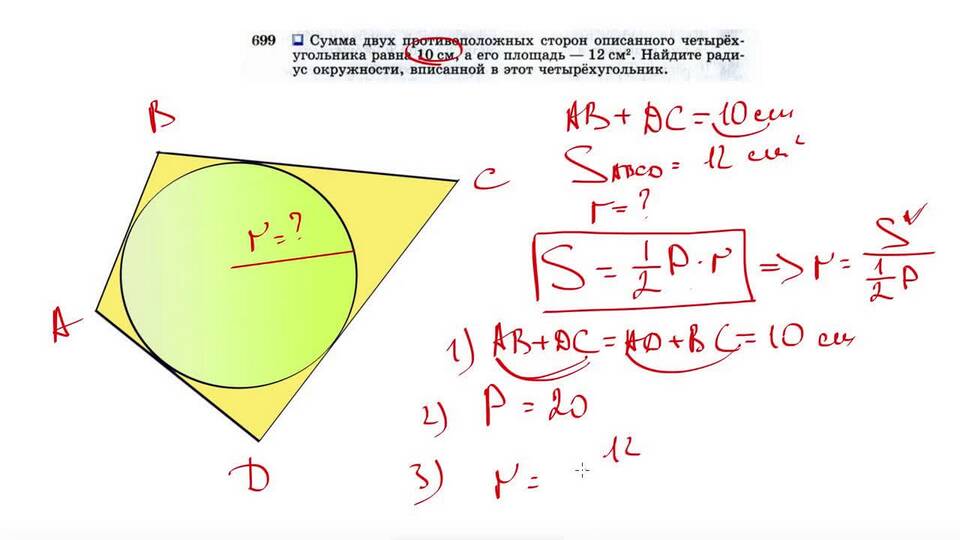 699 Сумма двух противоположных сторон описанного четырёх-
угольника равна 10 см, а его площадь — 12 см². Найдите ради-
ус окружности, вписанной в этот четырёхугольник.
B
C
A
D
r = ?
AB + DC = 10 см
S ABCD = 12 см²
r = ?
S = 1/2 P · r => r = S / 1/2 P
1) AB + DC = AD + BC = 10 см
2) P = 20
3) r = 12